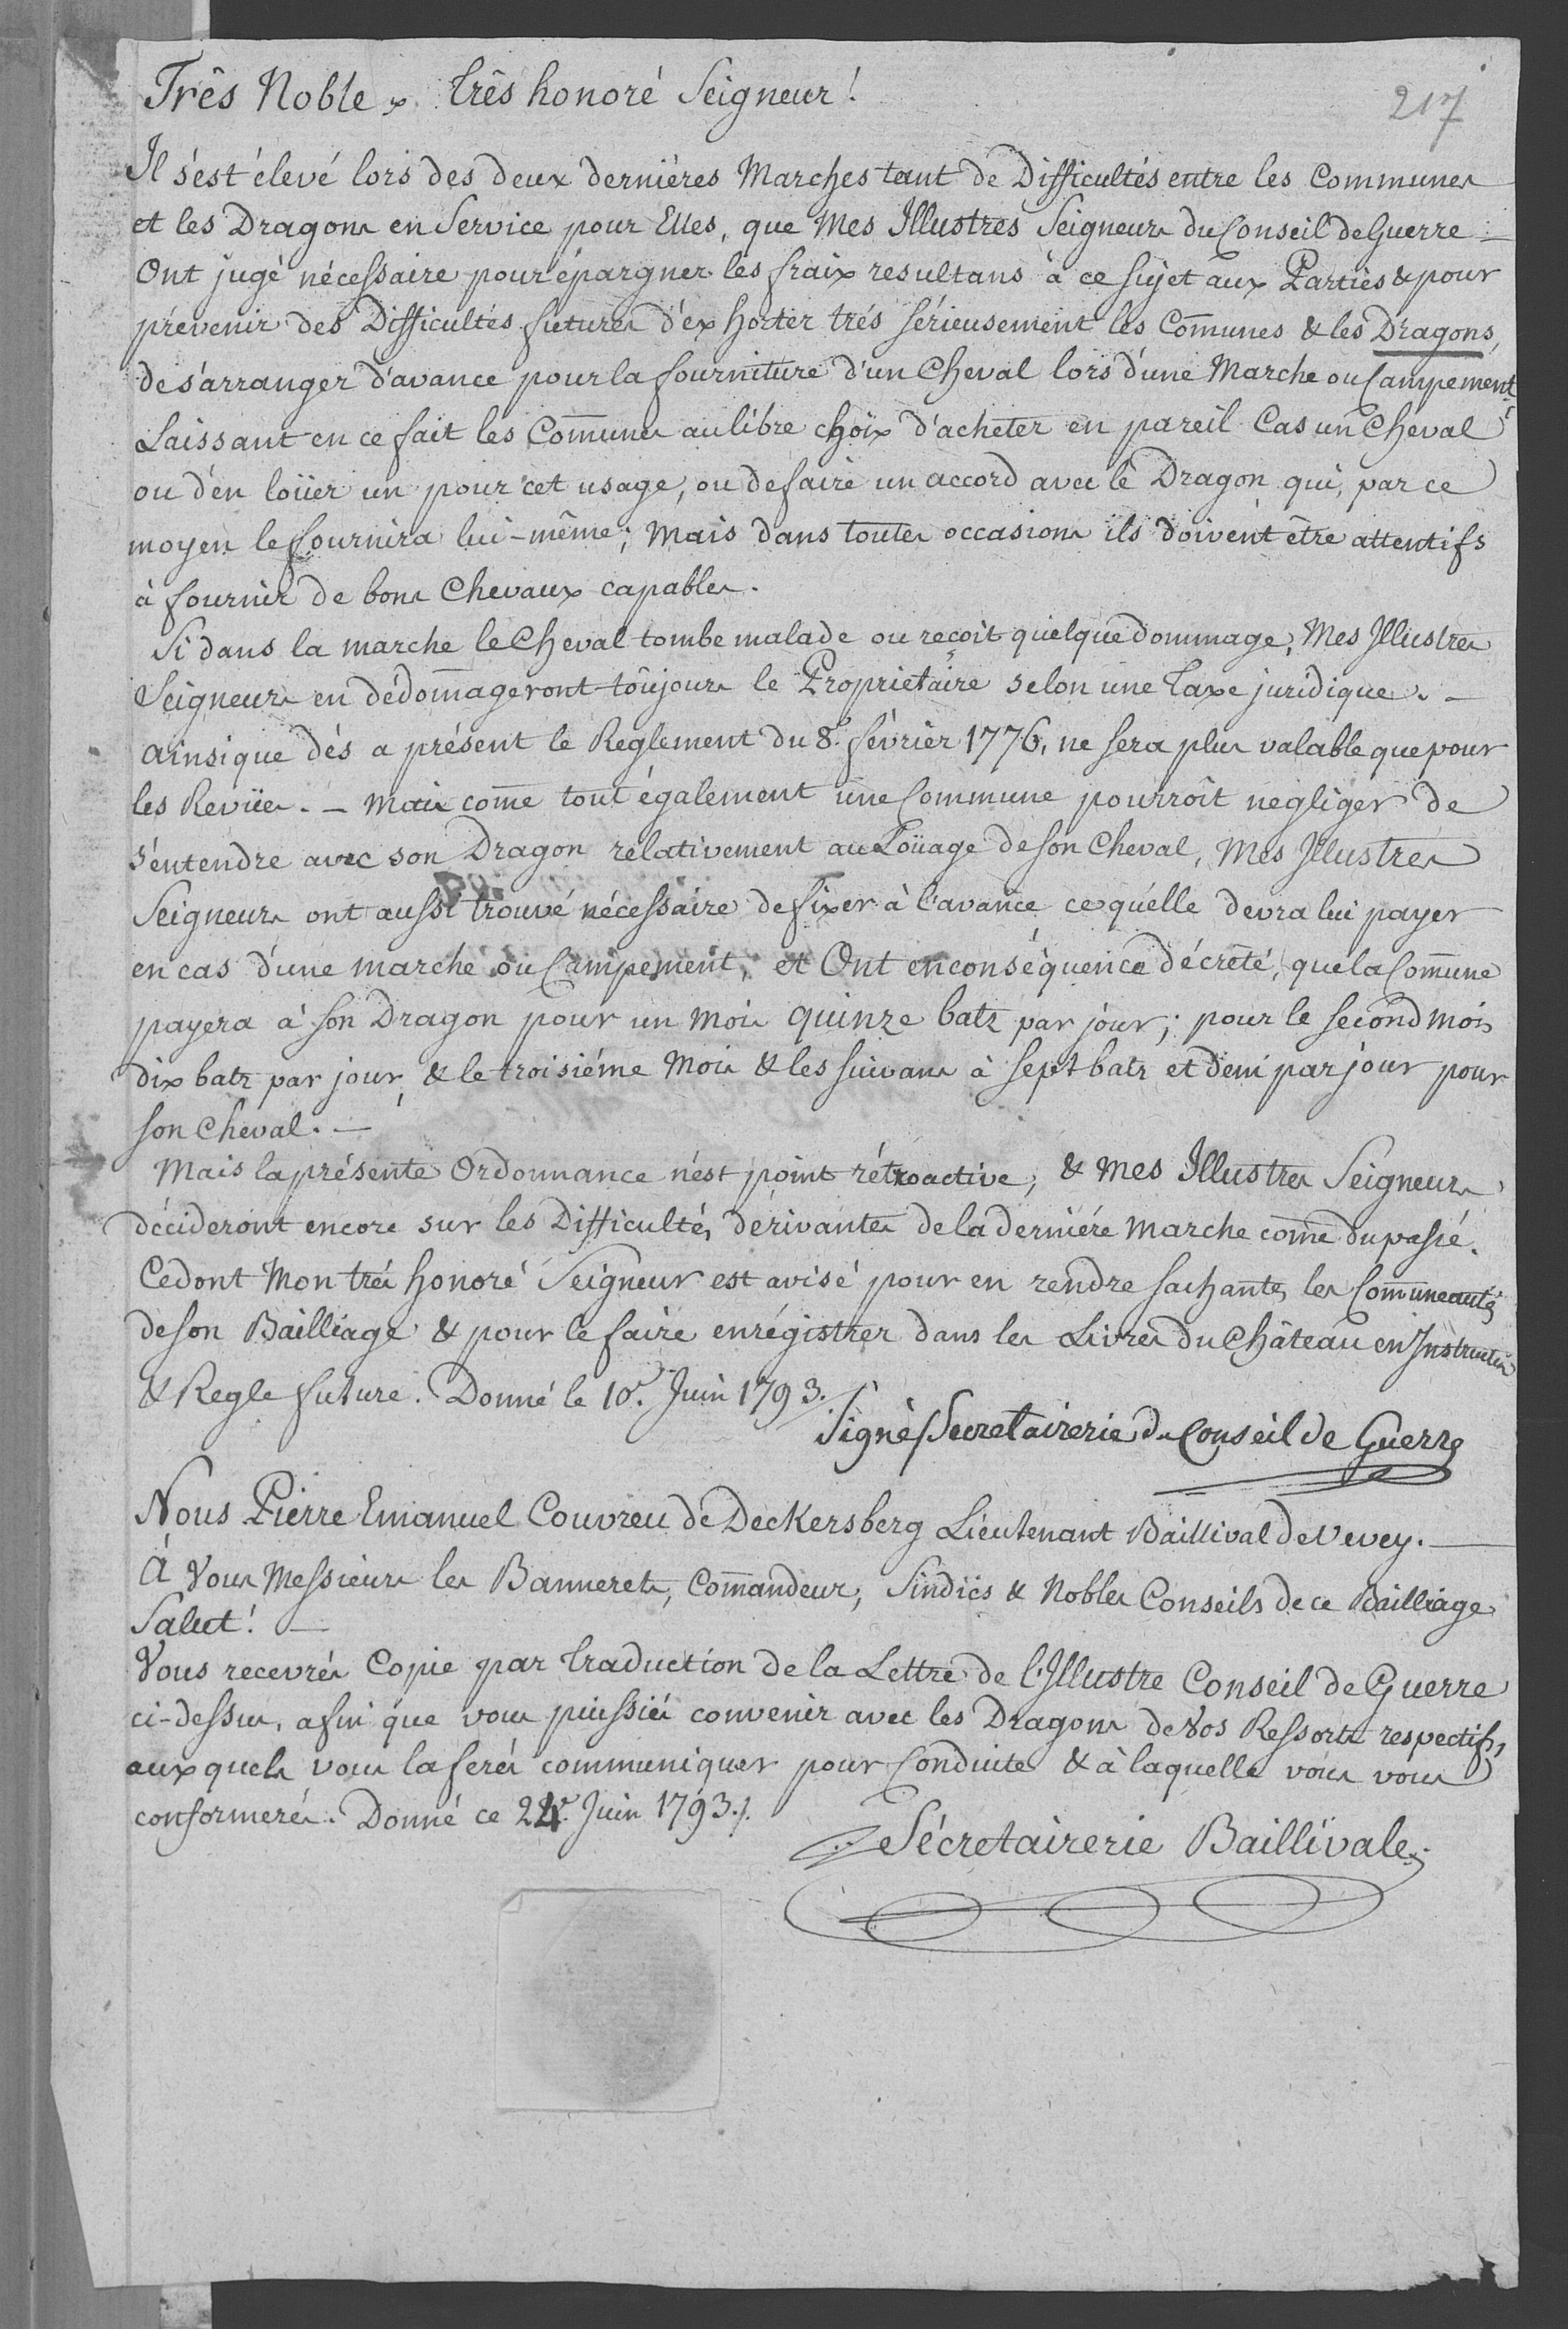 217
Três Noble & três honoré Seigneur!
Il s'est élevé lors des deux dernières Marches tant de Difficultés entre les Communes
et les Dragons en Service pour Elles, que Mes Illustres Seigneurs du Conseil de Guerre
Ont jugé nécessaire pour épargner les fraix resultans à ce sujet aux Parties & pour
prévenir des Difficultés futures d'exhorter très sérieusement les Comunes & les Dragons,
de s'arranger d'avance pour la fourniture d'un Cheval lors d'une Marche ou Campement,
Laissant en ce fait les Comunes au libre choix d'acheter en pareil Cas un Cheval
ou d'en loüer un pour cet usage, ou de faire un accord avec le Dragon qui, par ce
moyen le fournira lui-même; Mais dans toutes occasions ils doivent être attentifs
à fournir de bons Chevaux capables.
Si dans la marche le Cheval tombe malade ou reçoit quelque dommage, Mes Illustres
Seigneurs en dédomageront toûjours le Propriétaire selon une Taxe juridique. —
Ainsi que dès a présent le Reglement du 8.e février 1776, ne sera plus valable que pour
les Revües. — Mais come tout également une Commune pourroit negliger de
s'entendre avec son Dragon relativement au Loüage de son Cheval, Mes Illustres
Seigneurs ont aussi trouvé nécessaire de fixer à l'avance ce qu'elle devra lui payer
en cas d'une marche ou Campement, et Ont en conséquence décrété, que la Comune
payera à son Dragon pour un Mois quinze batz par jour; pour le second mois
dix batz par jour, & le troisiéme Mois & les suivans à sept batz et demi par jour pour
son Cheval. —
Mais la présente Ordonnance n'est point rétroactive, & Mes Illustres Seigneurs
décideront encore sur les Difficultés dérivantes de la derniére Marche come du passé.
Ce dont Mon très honoré Seigneur est avisé pour en rendre sachantes les Communeautés
de son Bailliage & pour le faire enrégistrer dans les Livres du Château en Instruction
& Regle future. Donné le 10.e Juin 1793.
Signé/Secretairerie du Conseil de Guerre
Nous Pierre Emanuel Couvreu de Deckersberg Lieutenant Baillival de Vevey. —
À Vous Messieurs les Bannerets, Comandeur, Sindics & Nobles Conseils de ce Bailliage
Salut! —
Vous recevrés Copie par Traduction de la Lettre de l'Illustre Conseil de Guerre
ci-dessus, afin que vous puissiés convenir avec les Dragons de Vos Ressorts respectifs,
auxquels vous la ferés communiquer pour Conduite & à laquelle vous vous
conformerés. Donné ce 24.e Juin 1793./.
Sécretairerie Baillivale